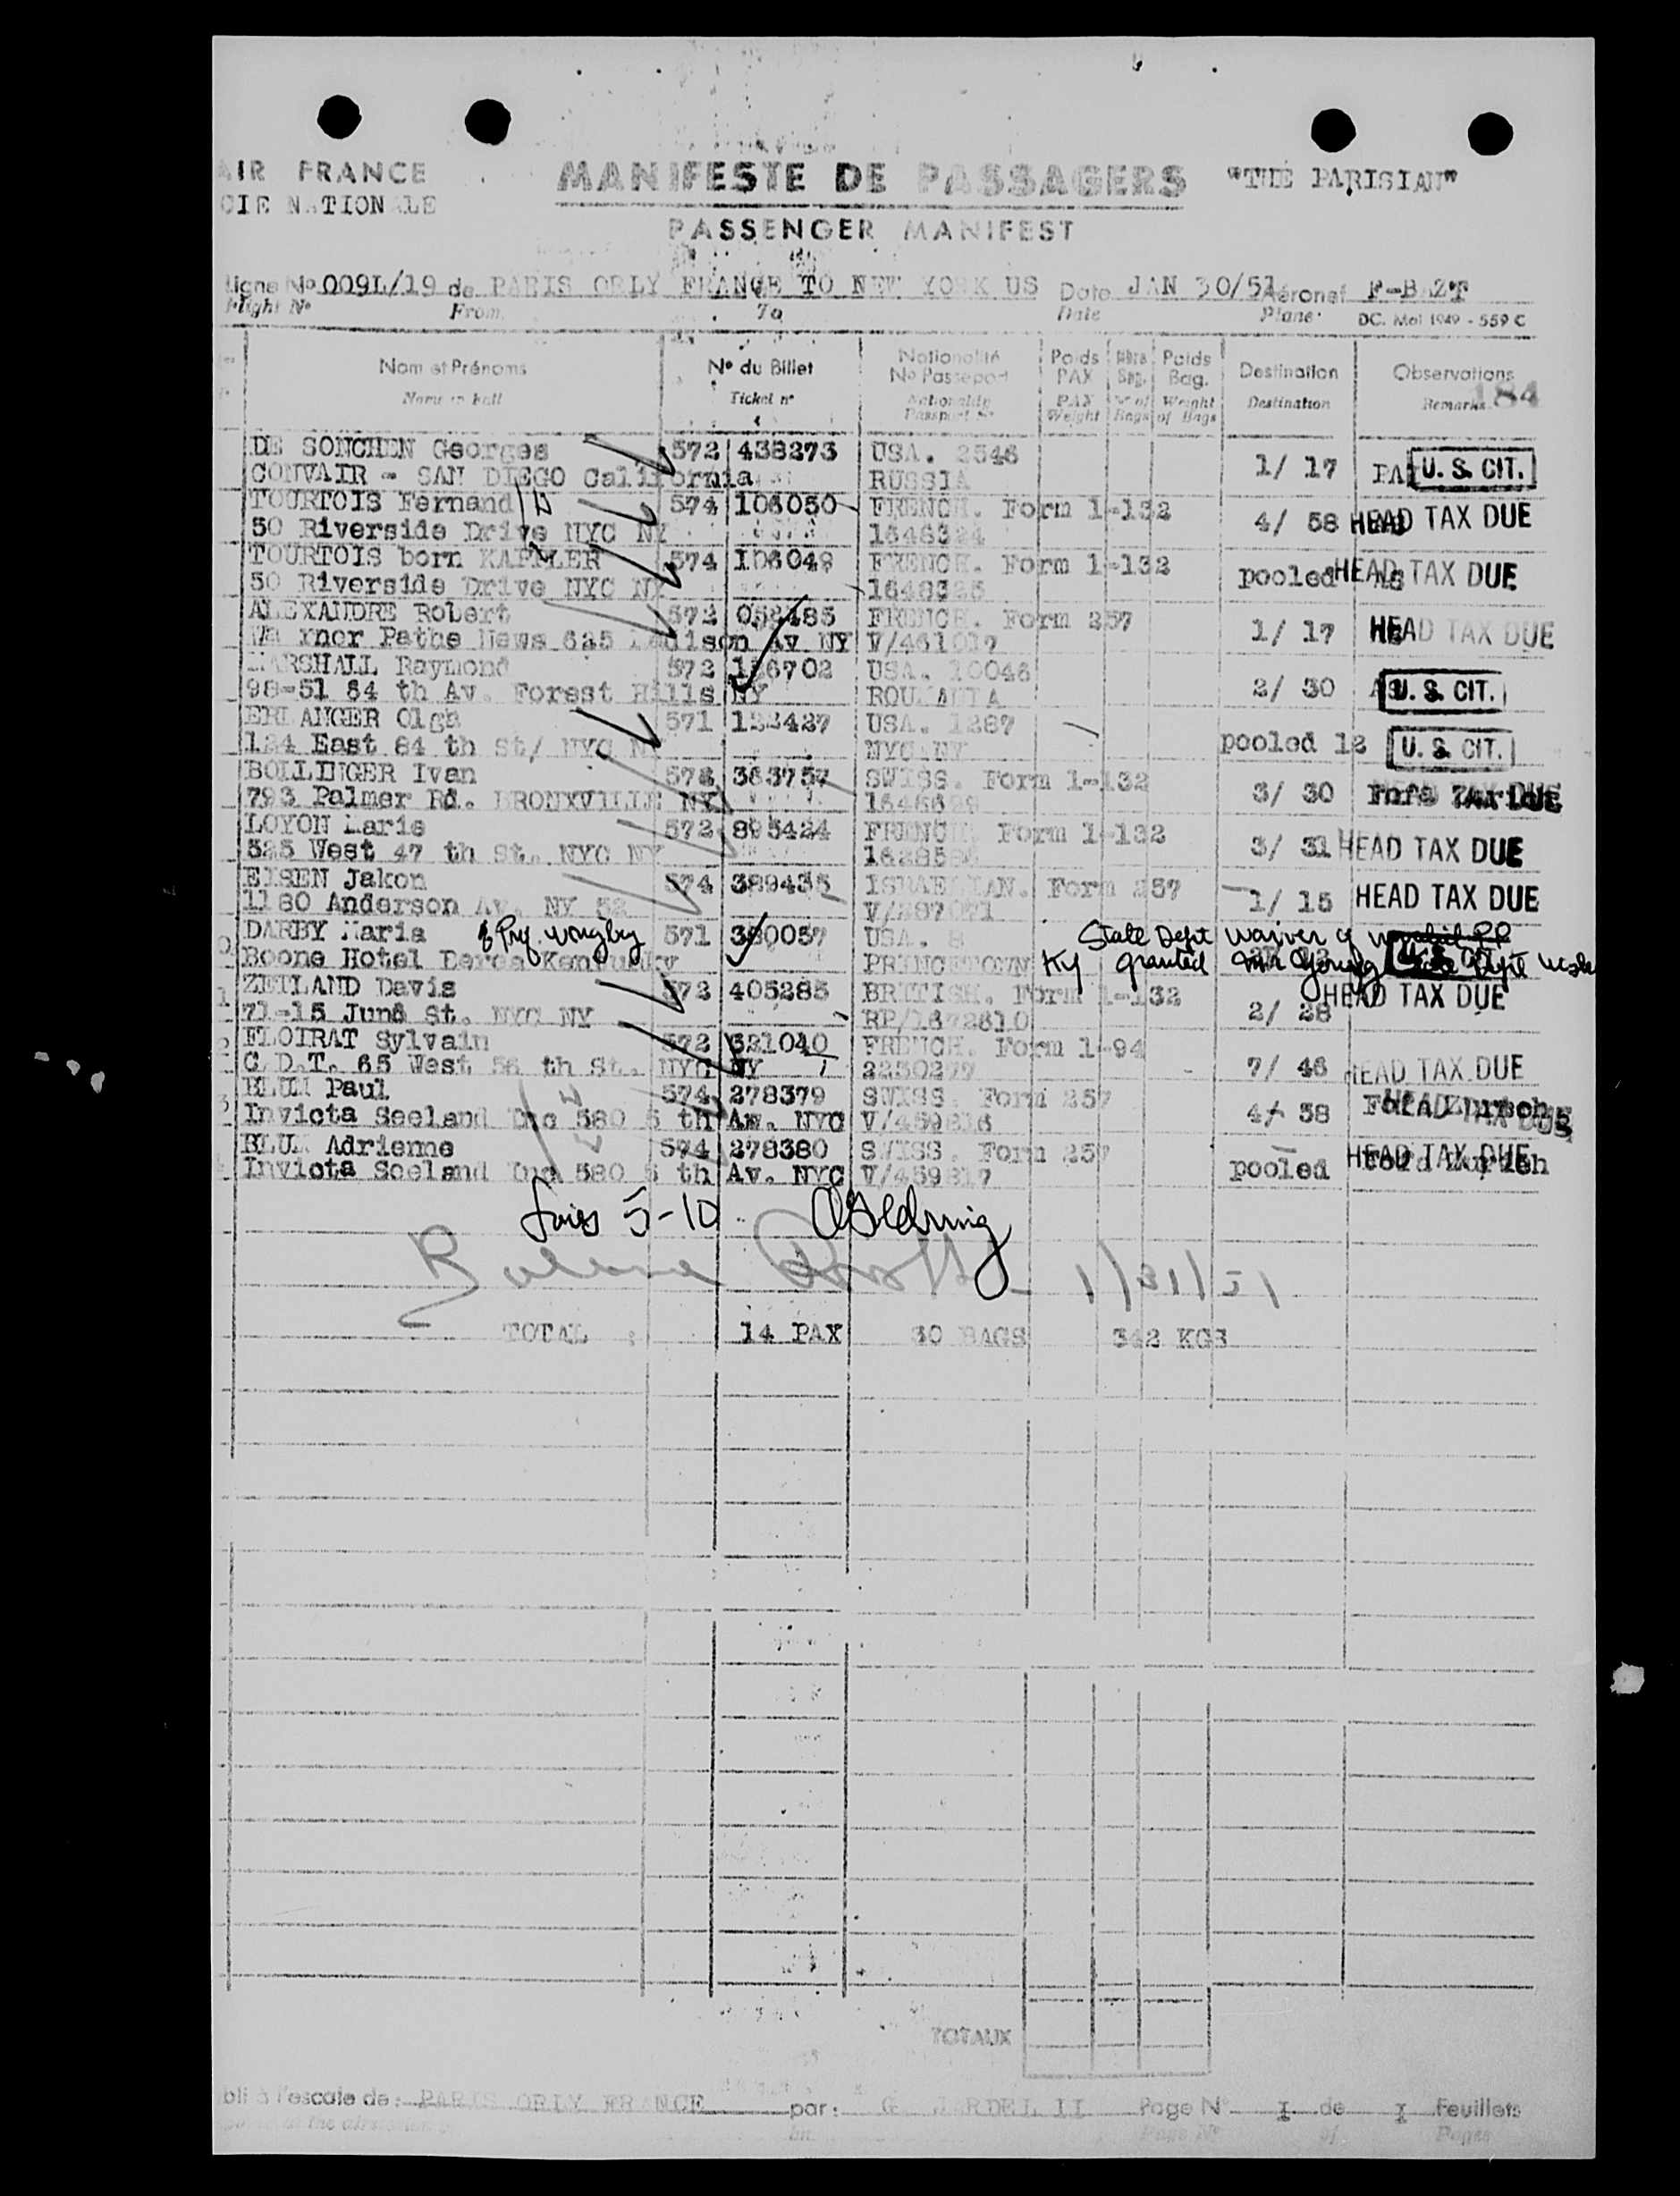 AIR FRANCE
CIE NATIONALE
MANIFESTE DE PASSAGERS
"THE PARISIAN"
PASSENGER MANIFEST
Ligne No 009L/19 de PARIS ORLY FRANCE TO NEW YORK US Date JAN 30/51 Aéronef F-BAZT
Flight No From To Date Plane DC. Mai 1949 - 559 C
Nom et Prénoms No du Billet Nationalité No Passeport Poids PAX Nbre Bag. Poids Bag. Destination Observations
Name in full Ticket no Nationality Passport No PAX Weight No of Bags Weight of Bags Destination Remarks 184
DE SONCHEN Georges 572 438273 USA. 2546 1/ 17 U.S. CIT.
CONVAIR - SAN DIEGO California RUSSIA
TOURTOIS Fernand 574 106050 FRENCH. Form 1-132 4/ 58 HEAD TAX DUE
50 Riverside Drive NYC NY 1648324
TOURTOIS born KAPPLER 574 106049 FRENCH. Form 1-132 pooled HEAD TAX DUE
50 Riverside Drive NYC NY 1648325
ALEXANDRE Robert 572 052485 FRENCH. Form 257 1/ 17 HEAD TAX DUE
Pathe News 625 Madison Av NY V/461017
MARSHALL Raymond 572 136702 USA. 10046 2/ 30 U.S. CIT.
98-51 64 th Av. Forest Hills NY
ERLANGER Olga 571 122427 USA. 1287 pooled 12 U.S. CIT.
124 East 84 th St/ NYC NY NYC NY
BOLLINGER Ivan 572 383757 SWISS. Form 1-132 3/ 30
793 Palmer Rd. BRONXVILLE NY 1646629
LOYON Marie 572 895424 FRENCH Form 1-132 3/ 31 HEAD TAX DUE
525 West 47 th St. NYC NY
EISEN Jakon 574 389435 ISRAELIAN. Form 257 1/ 15 HEAD TAX DUE
1180 Anderson Av. NY 52
DARBY Maria 571 380057 USA. State Dept waiver of
Boone Hotel Kentucky PRINCETOWN Ky granted
ZEILAND Davis 572 405285 BRITISH. Form 1-132 2/ 28 HEAD TAX DUE
71-15 June St. NYC NY RP/1672610
FLOIRAT Sylvain 572 321040 FRENCH. Form 1-94 7/ 46 HEAD TAX DUE
C.D.T. 65 West 56 th St. NYC NY 2250277
BLUM Paul 574 278379 SWISS. Form 257 4/ 58
Invicta Seeland Inc 580 5 th Av. NYC V/459816
BLUM Adrienne 574 278380 SWISS. Form 257 pooled HEAD TAX DUE
Invicta Seeland Inc 580 5 th Av. NYC V/459817
5-10
1/31/51
TOTAL : 14 PAX 30 BAGS 342 KGS
TOTAUX
l'escale de: PARIS ORLY FRANCE par: Page No I de I Feuillets
Page No of Pages